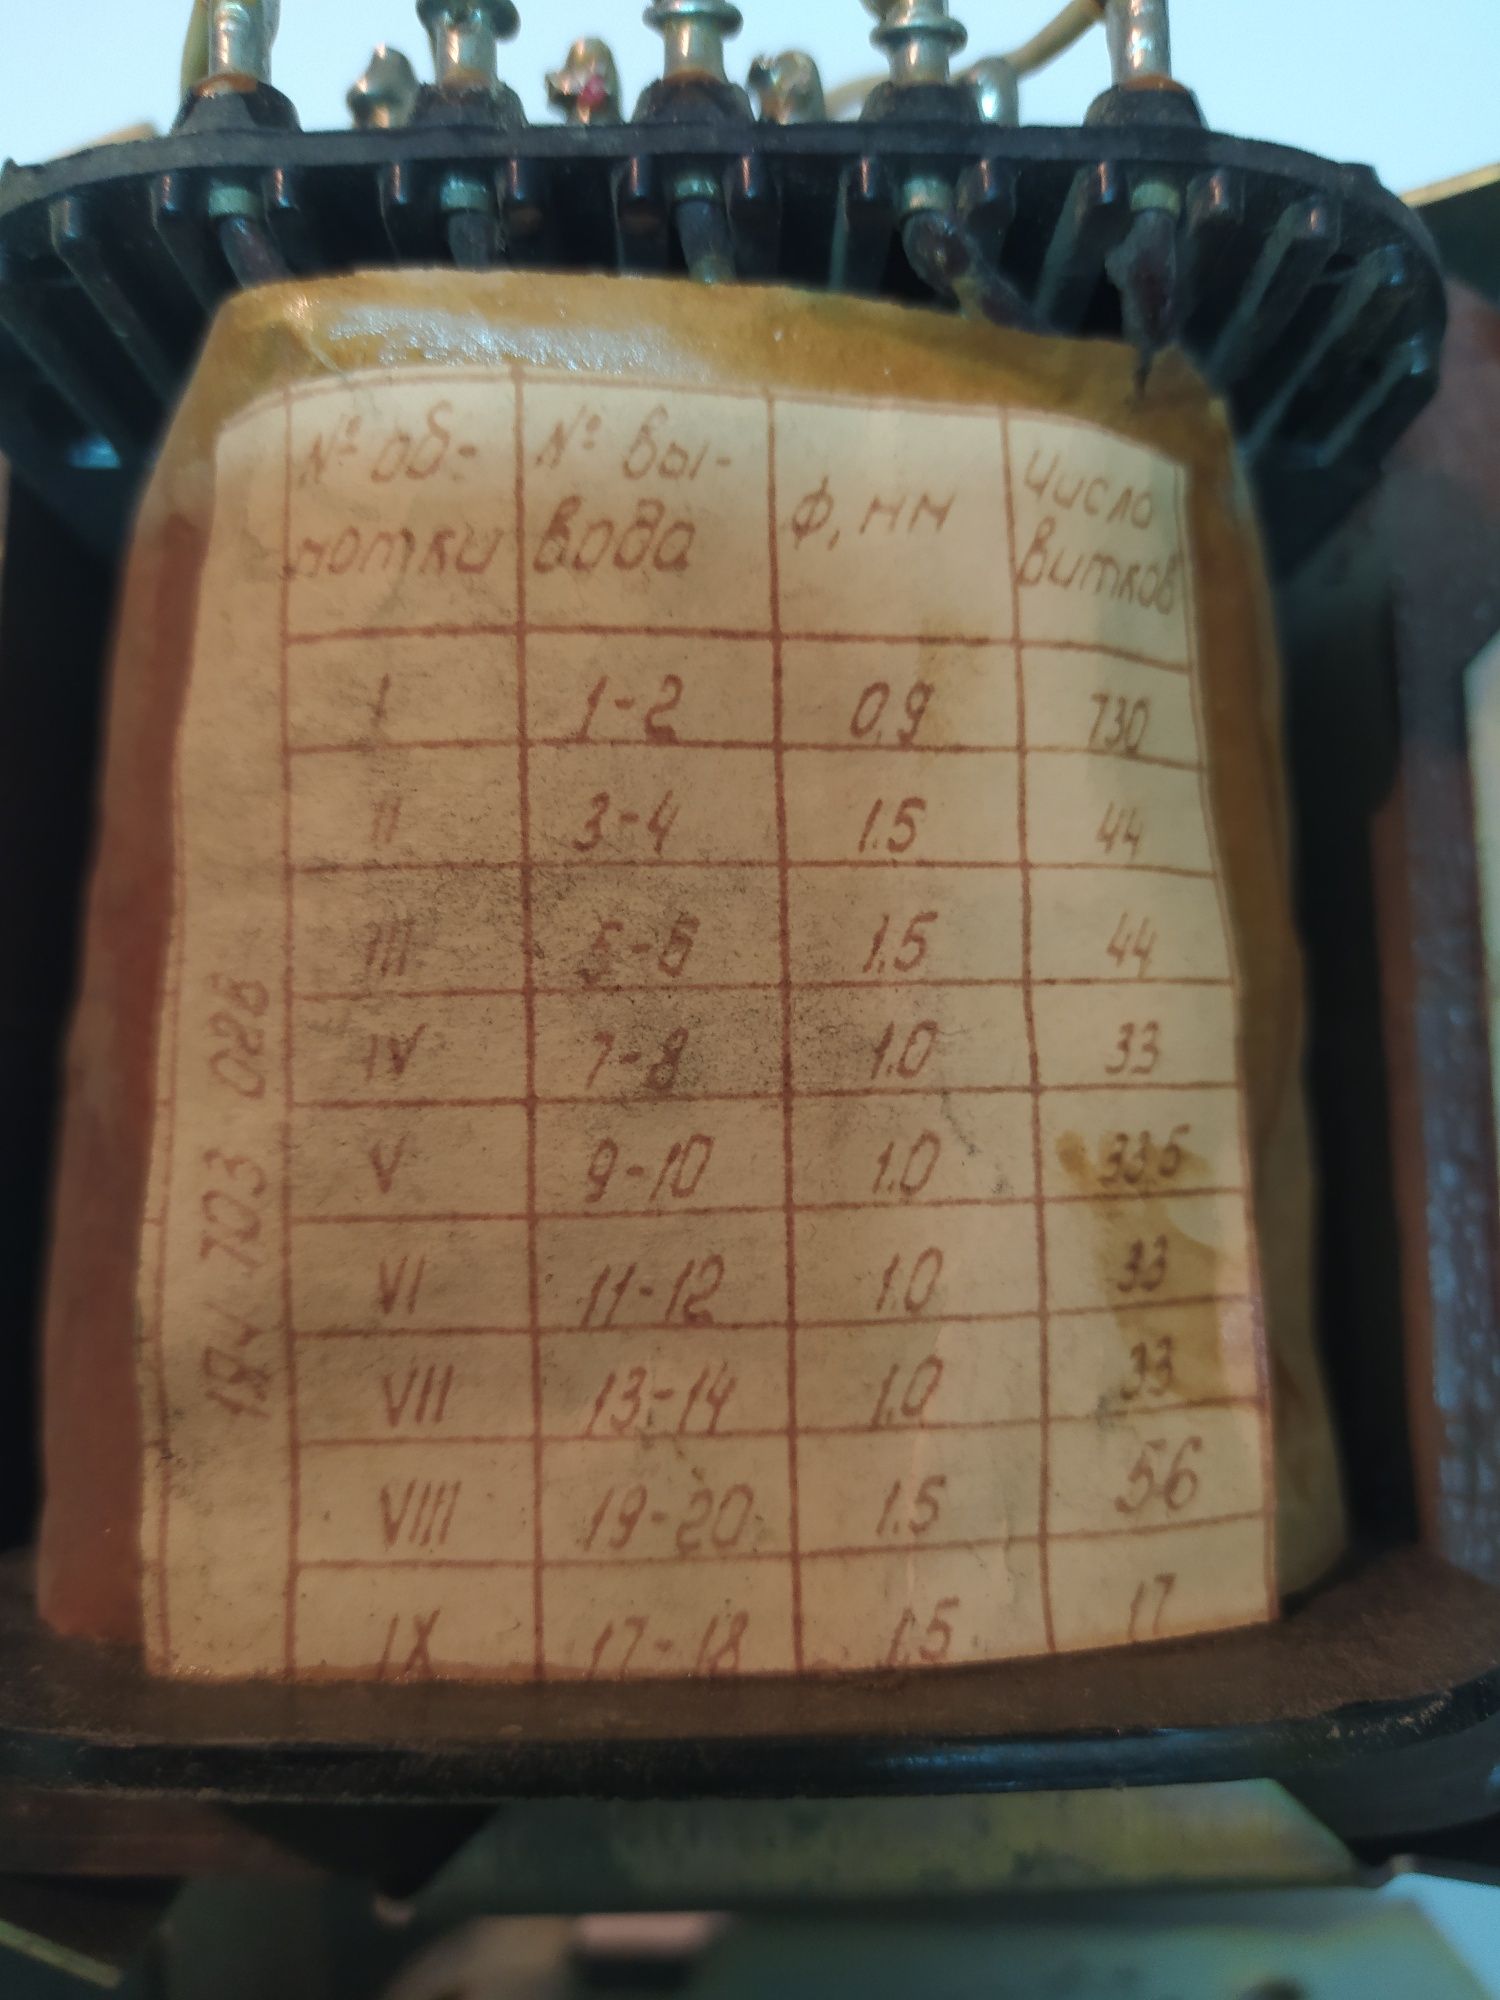 № об-
мотки
№ вы-
вода
Ф, мм
Число
витков
I 1-2 0.9 730
II 3-4 1.5 44
III 5-6 1.5 44
IV 7-8 1.0 33
V 9-10 1.0 33.5
VI 11-12 1.0 33
VII 13-14 1.0 33
VIII 19-20 1.5 56
IX 17-18 1.5 17
703 028